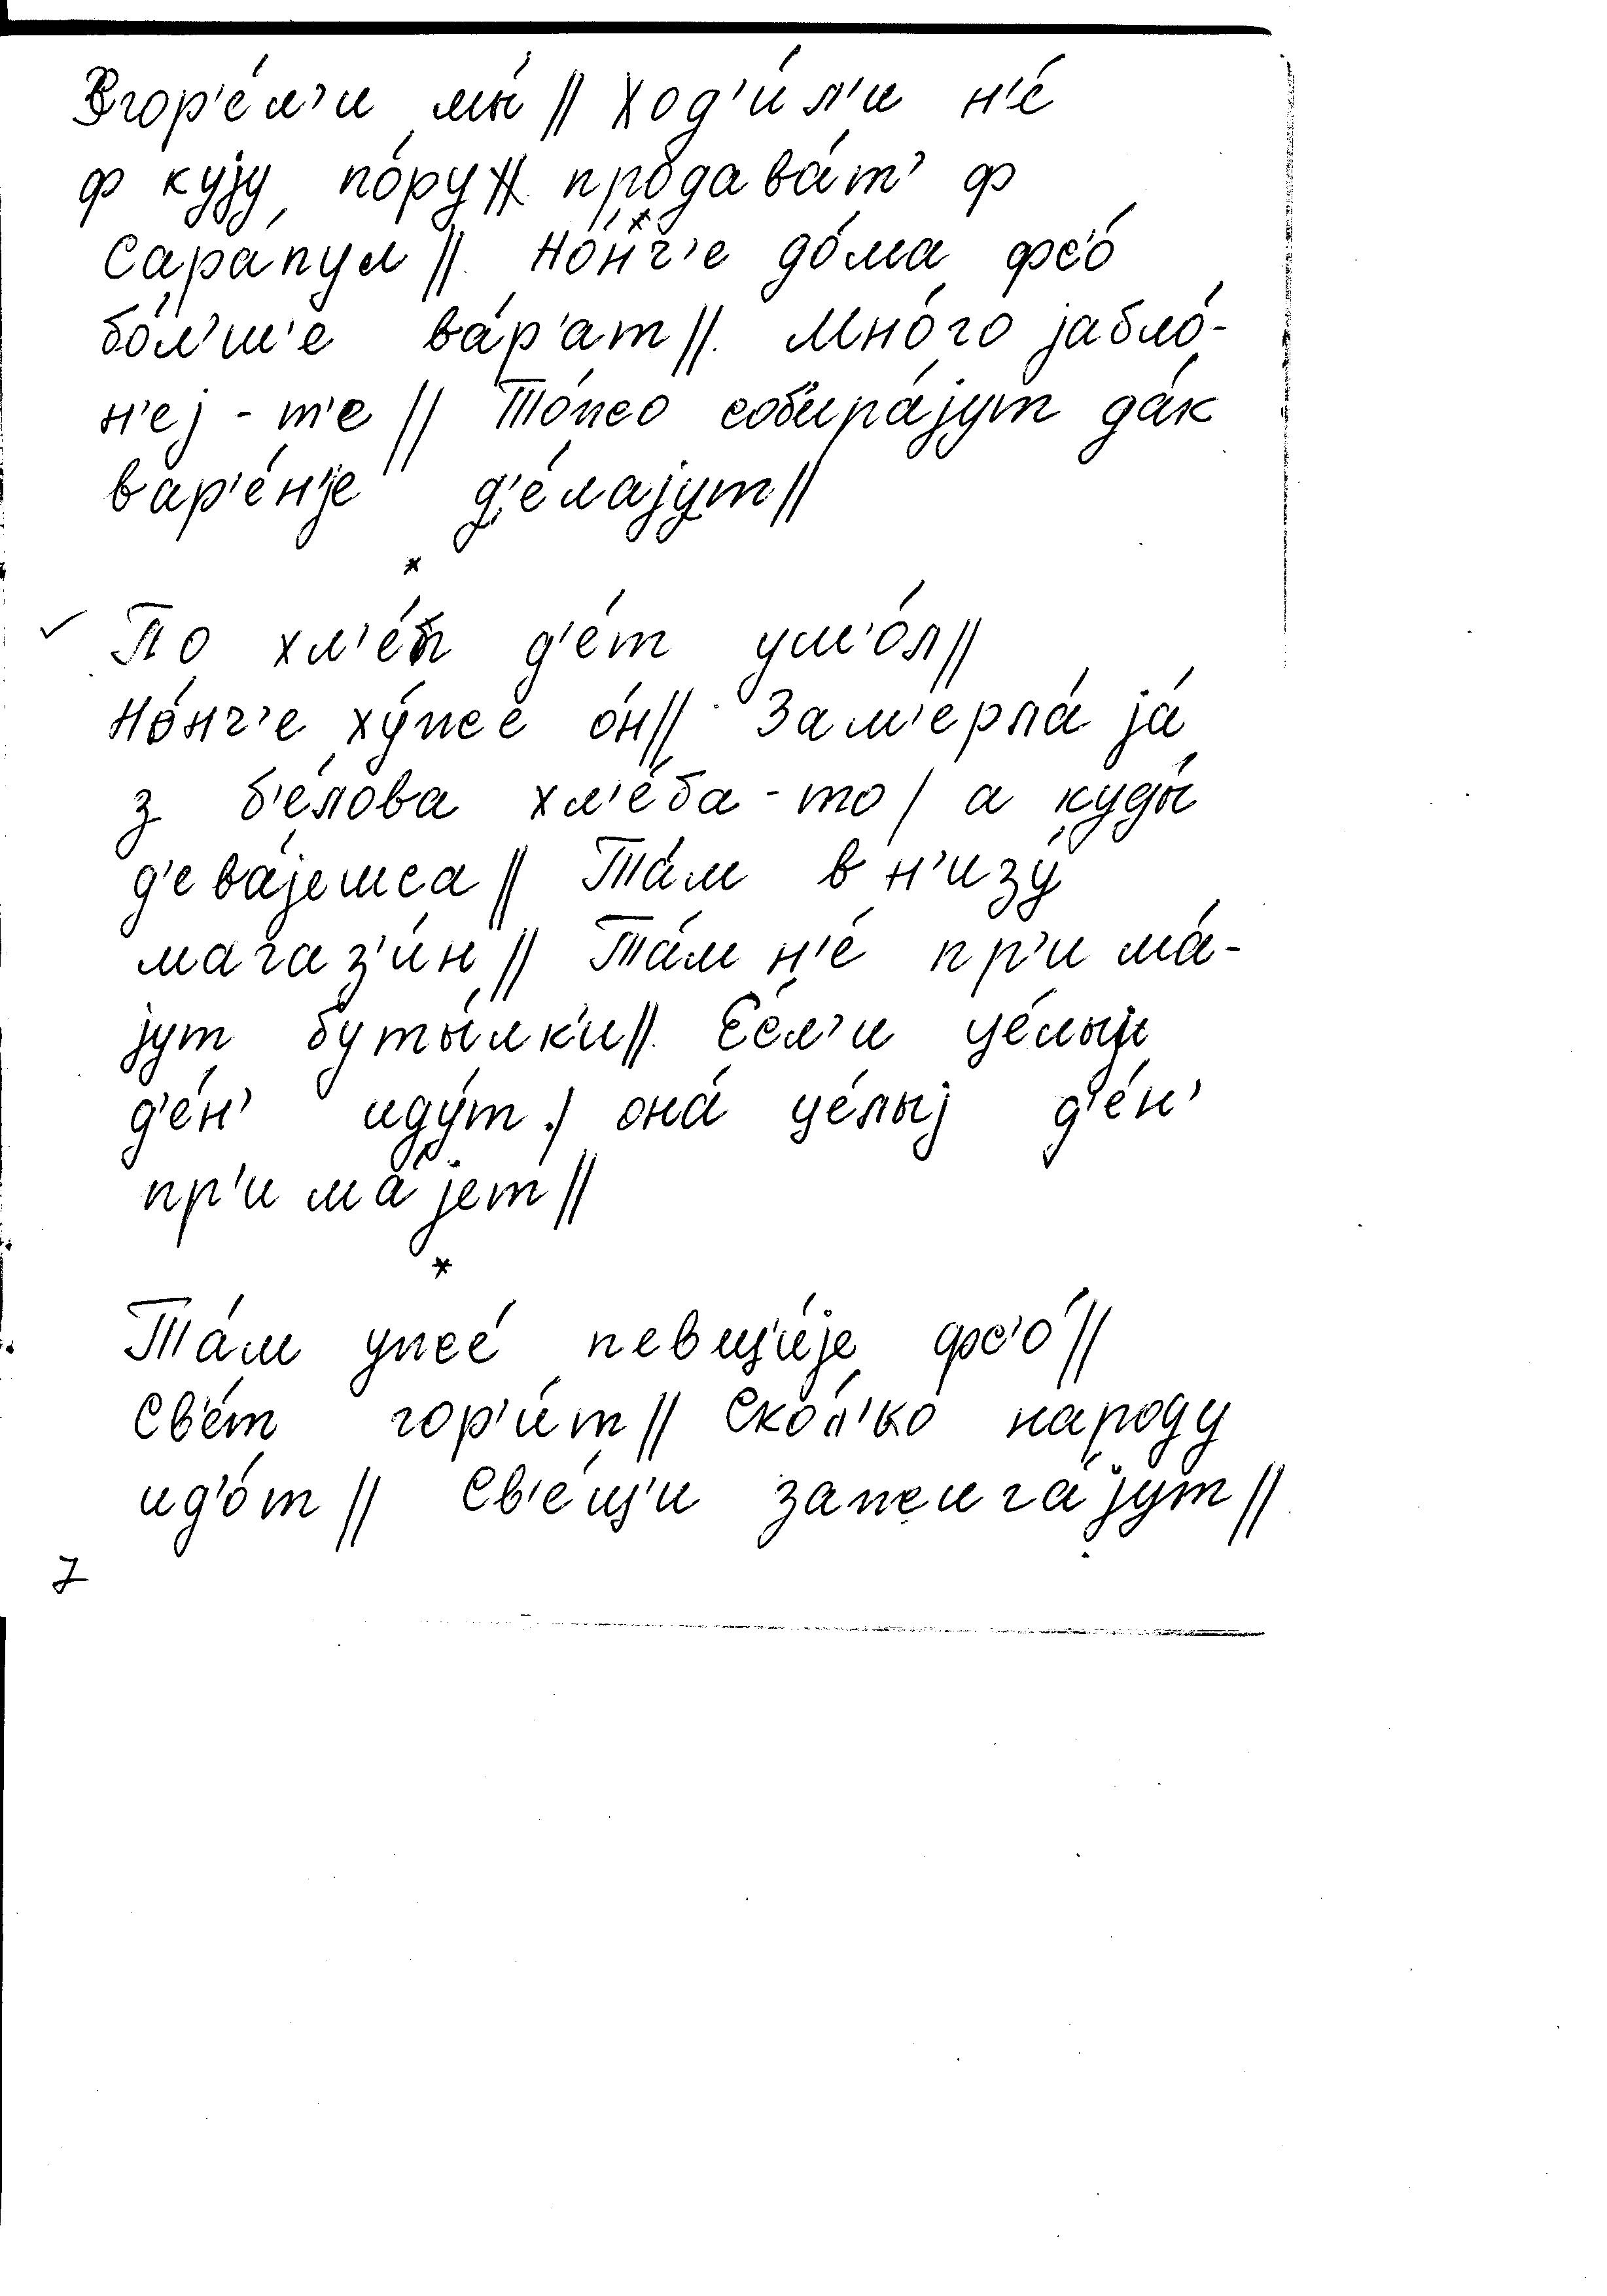 Вгор'е́л'и мы́ // Ход'и́л'и н'е́
ф кују по́ру // продава́т' ф
Сара́пул // Но́нч'е до́ма фс'о́
бо́л'ш'е ва́р'ат // Мно́го јабло́-
н'еј - т'е // То́жо соб'ира́јут да́к
вар'е́н'је д'е́лајут //
*
✓ По хл'е́п д'е́т ушо́л //
Но́нч'е ху́же о́н // Зам'ерла́ ја́
з б'е́лова хл'е́ба - то / а куды́
д'ева́јешса // Та́м в н'изу́
магаз'и́н // Та́м н'е́ пр'има́-
јут буты́лк'и // Е́сл'и це́лыј
д'е́н' иду́т / она́ це́лыј д'е́н'
пр'има́јет //
*
Та́м уже́ певц'и́је фс'о́ //
Св'е́т гор'и́т // Ско́л'ко народу
ид'о́т // Св'е́щ'и зажига́јут //
7